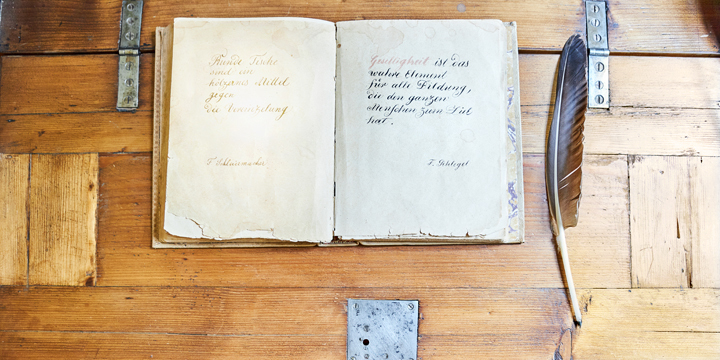 Runde Tische
sind ein
hölzernes Mittel
gegen
die Vereinzelung
F. Schleiermacher
Geselligkeit ist das
wahre Element
für alle Bildung,
die den ganzen
Menschen zum Ziel
hat.
F. Schlegel